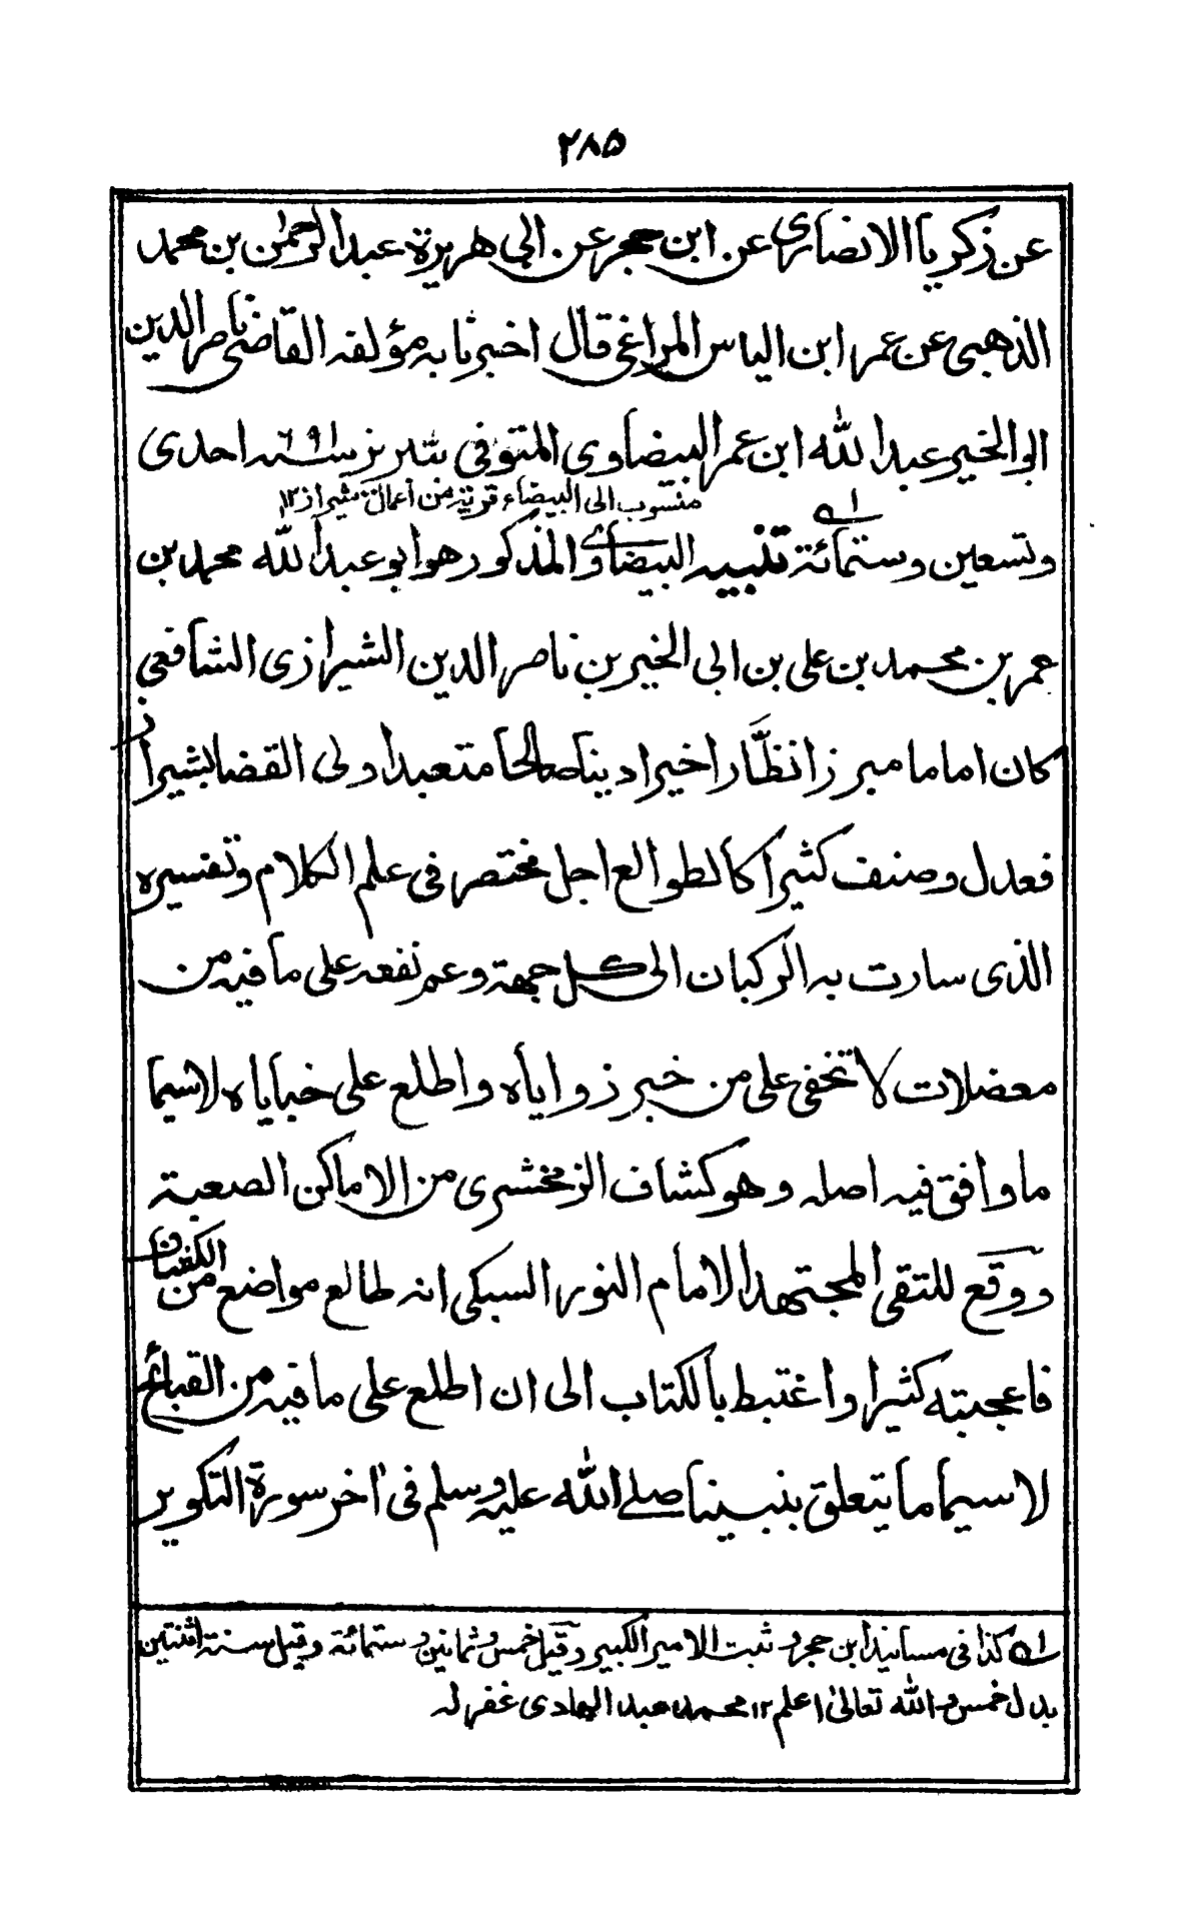 ٢٨٥
عن زكريا الانصارى عن ابن حجر عن ابى هريرة عبد الرحمٰن بن محمد
الذهبى عن عمر ابن الياس المراغى قال اخبرنا به مؤلفه القاضى ناصر الدين
ابو الخير عبد الله ابن عمر البيضاوى المتوفى بتبريز سنة ٦٩١ احدى
منسوب الى البيضاء قرية من أعمال شيراز ١٢
وتسعين وستمائة ١ه تنبيه البيضاوى المذكور هو ابو عبد الله محمد بن
عمر بن محمد بن على بن ابى الخير بن ناصر الدين الشيرازى الشافعى
كان اماما مبرزا نظَّارا خيرا دينا صالحا متعبدا ولى القضا بشيراز
فعدل وصنف كثيرا كالطوالع اجل مختصر فى علم الكلام وتفسيره
الذى سارت به الركبان الى كل جهة وعم نفعه على ما فيه من
معضلات لا تخفى على من خبر زواياه واطلع على خباياه لاسيما
ما وافق فيه اصله وهو كشاف الزمخشرى من الاماكن الصعبة
ووقع للتقى المجتهد الامام النور السبكى انه طالع مواضع من الكشاف
فاعجبته كثيرا واغتبط بالكتاب الى ان اطلع على ما فيه من القبائح
لاسيما ما يتعلق بنبينا صلے الله عليه وسلم فى اخر سورة التكوير
١ه كذا فى مسانيد ابن حجر و ثبت الامير الكبير وقيل خمس وثمانين وستمائة وقيل سنة اثنتين
بدل خمس والله تعالىٰ اعلم ١٢ محمد عبد الهادى غفر له